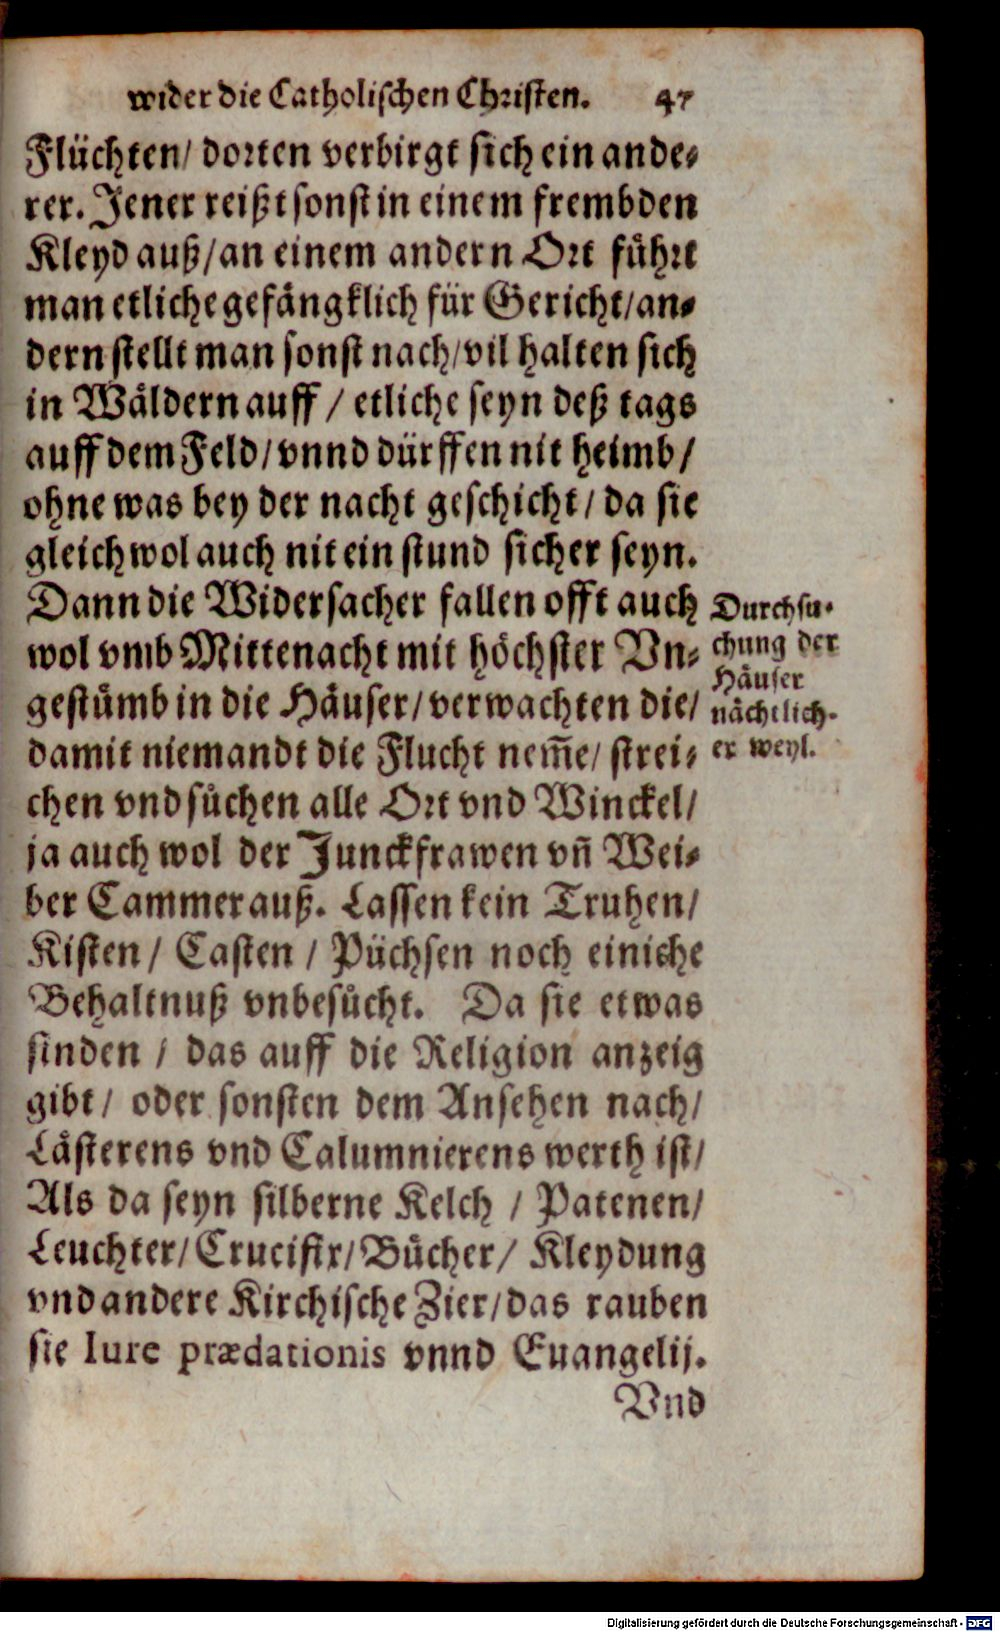 wider die Catholischen Christen. 47
Flüchten/ dorten verbirgt sich ein ande⸗
rer. Jener reißt sonst in einem frembden
Kleyd auß/ an einem andern Ort führt
man etliche gefängklich für Gericht/ an⸗
dern stellt man sonst nach/ vil halten sich
in Wäldern auff / etliche seyn deß tags
auff dem Feld/ vnnd dürffen nit heimb/
ohne was bey der nacht geschicht/ da sie
gleichwol auch nit ein stund sicher seyn.
Dann die Widersacher fallen offt auch
wol vmb Mittenacht mit höchster Vn⸗
gestümb in die Häuser/ verwachten die/
damit niemandt die Flucht nem̃e/ strei⸗
chen vnd sůchen alle Ort vnd Winckel/
ja auch wol der Junckfrawen vñ Wei⸗
ber Cammer auß. Lassen kein Truhen/
Kisten/ Casten / Püchsen noch einiche
Behaltnuß vnbesůcht. Da sie etwas
finden / das auff die Religion anzeig
gibt/ oder sonsten dem Ansehen nach/
Lästerens vnd Calumnierens werth ist/
Als da seyn silberne Kelch / Patenen/
Leuchter/ Crucifix/ Bücher/ Kleydung
vnd andere Kirchische Zier/ das rauben
sie Iure prædationis vnnd Euangelij.
Vnd
Durchsu⸗
chung der
Häuser
nächtlich⸗
er weyl.
Digitalisierung gefördert durch die Deutsche Forschungsgemeinschaft - DFG